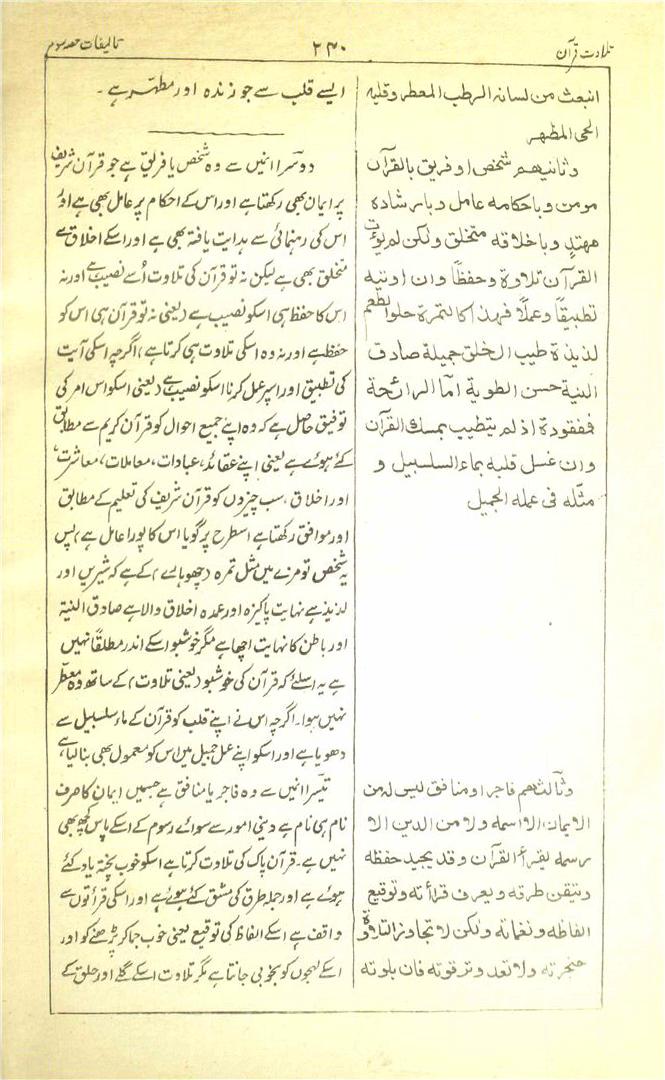 تلاوت قرآن
۲۴۰
تالیفات حصہ سوم
انبعث من لسانہ الرطب المعطر وقلبہ
الحی المطهر
وثانیهم شخص او فریق بالقرآن
مومن وباحکامه عامل وبارشاده
مهتدٍ وباخلاقه متخلق ولکن لم یؤت
القرآن تلاوة وحفظًا وان اوتیه
تطبیقًا وعملًا فهذا کالتمرة حلو الطعم
لذیذة طیب الخلق جمیلة صادق
النیة حسن الطویة امّا الرائحة
ففقودة اذ لم یتطیب بمسک القرآن
وان غسل قلبه بماء السلسبیل و
مثّله فی عمله الجمیل
وثالثهم فاجر او منافق لیس له من
الایمان الا اسمه ولا من الدین الا
رسمه یقرأ القرآن وقد یجید حفظه
ویتقن طرقه ویعرف قرأته وتوقیع
الفاظه ونغماته ولکن لا تجاوز التلاوة
حنجرته ولا تعد وترقوته فان بلوته
ایسے قلب سے جو زندہ اور مطہّر ہے۔
دوسرا انیں سے وہ شخص یا فریق ہے جو قرآن شریف
پر ایمان بھی رکھتا ہے اور اس کے احکام پر عامل بھی ہے اور
اس کی رہنمائی سے ہدایت یافتہ بھی ہے اور اسکے اخلاق سے
متخلق بھی ہے لیکن نہ تو قرآن کی تلاوت اُسے نصیب ہے اور نہ
اس کا حفظ ہی اسکو نصیب ہے (یعنی نہ تو قرآن ہی اس کو
حفظ ہے اور نہ وہ اسکی تلاوت ہی کرتا ہے) اگرچہ اسکی آیت
کی تطبیق اور اسپر عمل کرنا اسکو نصیب ہے (یعنی اسکو اس امر کی
توفیق حاصل ہے کہ وہ اپنے جمیع احوال کو قرآن کریم سے مطابق
کئے ہوئے ہے یعنی اپنے عقائد، عبادات، معاملات، معاشرت،
اور اخلاق، سب چیزوں کو قرآن شریف کی تعلیم کے مطابق
اور موافق رکھتا ہے اسطرح پر گویا اس کا پورا عامل ہے) پس
یہ شخص تو مزے میں مثل تمرہ (چھوہارے) کے ہے کہ شیریں اور
لذیذ ہے نہایت پاکیزہ اور عمدہ اخلاق والا ہے صادق النیۃ
اور باطن کا نہایت اچھا ہے مگر خوشبو اسکے اندر مطلقًا نہیں
ہے یہ اسلئے کہ قرآن کی خوشبو (یعنی تلاوت) کے ساتھ وہ معطّر
نہیں ہوا۔ اگرچہ اس نے اپنے قلب کو قرآن کے ماءِ سلسبیل سے
دھویا ہے اور اسکو اپنے عمل جمیل میں اس کو معمول بھی بنا لیا ہے،
تیسرا انیں سے وہ فاجر یا منافق ہے جسمیں ایمان کا صرف
نام ہی نام ہے دینی امور سے سوائے رسوم کے اسکے پاس کچھ بھی
نہیں ہے۔ قرآن پاک کی تلاوت کرتا ہے اسکو خوب پختہ یاد کئے
ہوئے ہے اور جملہ طرق کی مشق کئے ہوئے ہے اور اسکی قرأتوں سے
واقف ہے اسکے الفاظ کی توقیع یعنی خوب جما کر پڑھنے کو اور
اسکے لہجوں کو بخوبی جانتا ہے مگر تلاوت اسکے گلے اور حلق کے